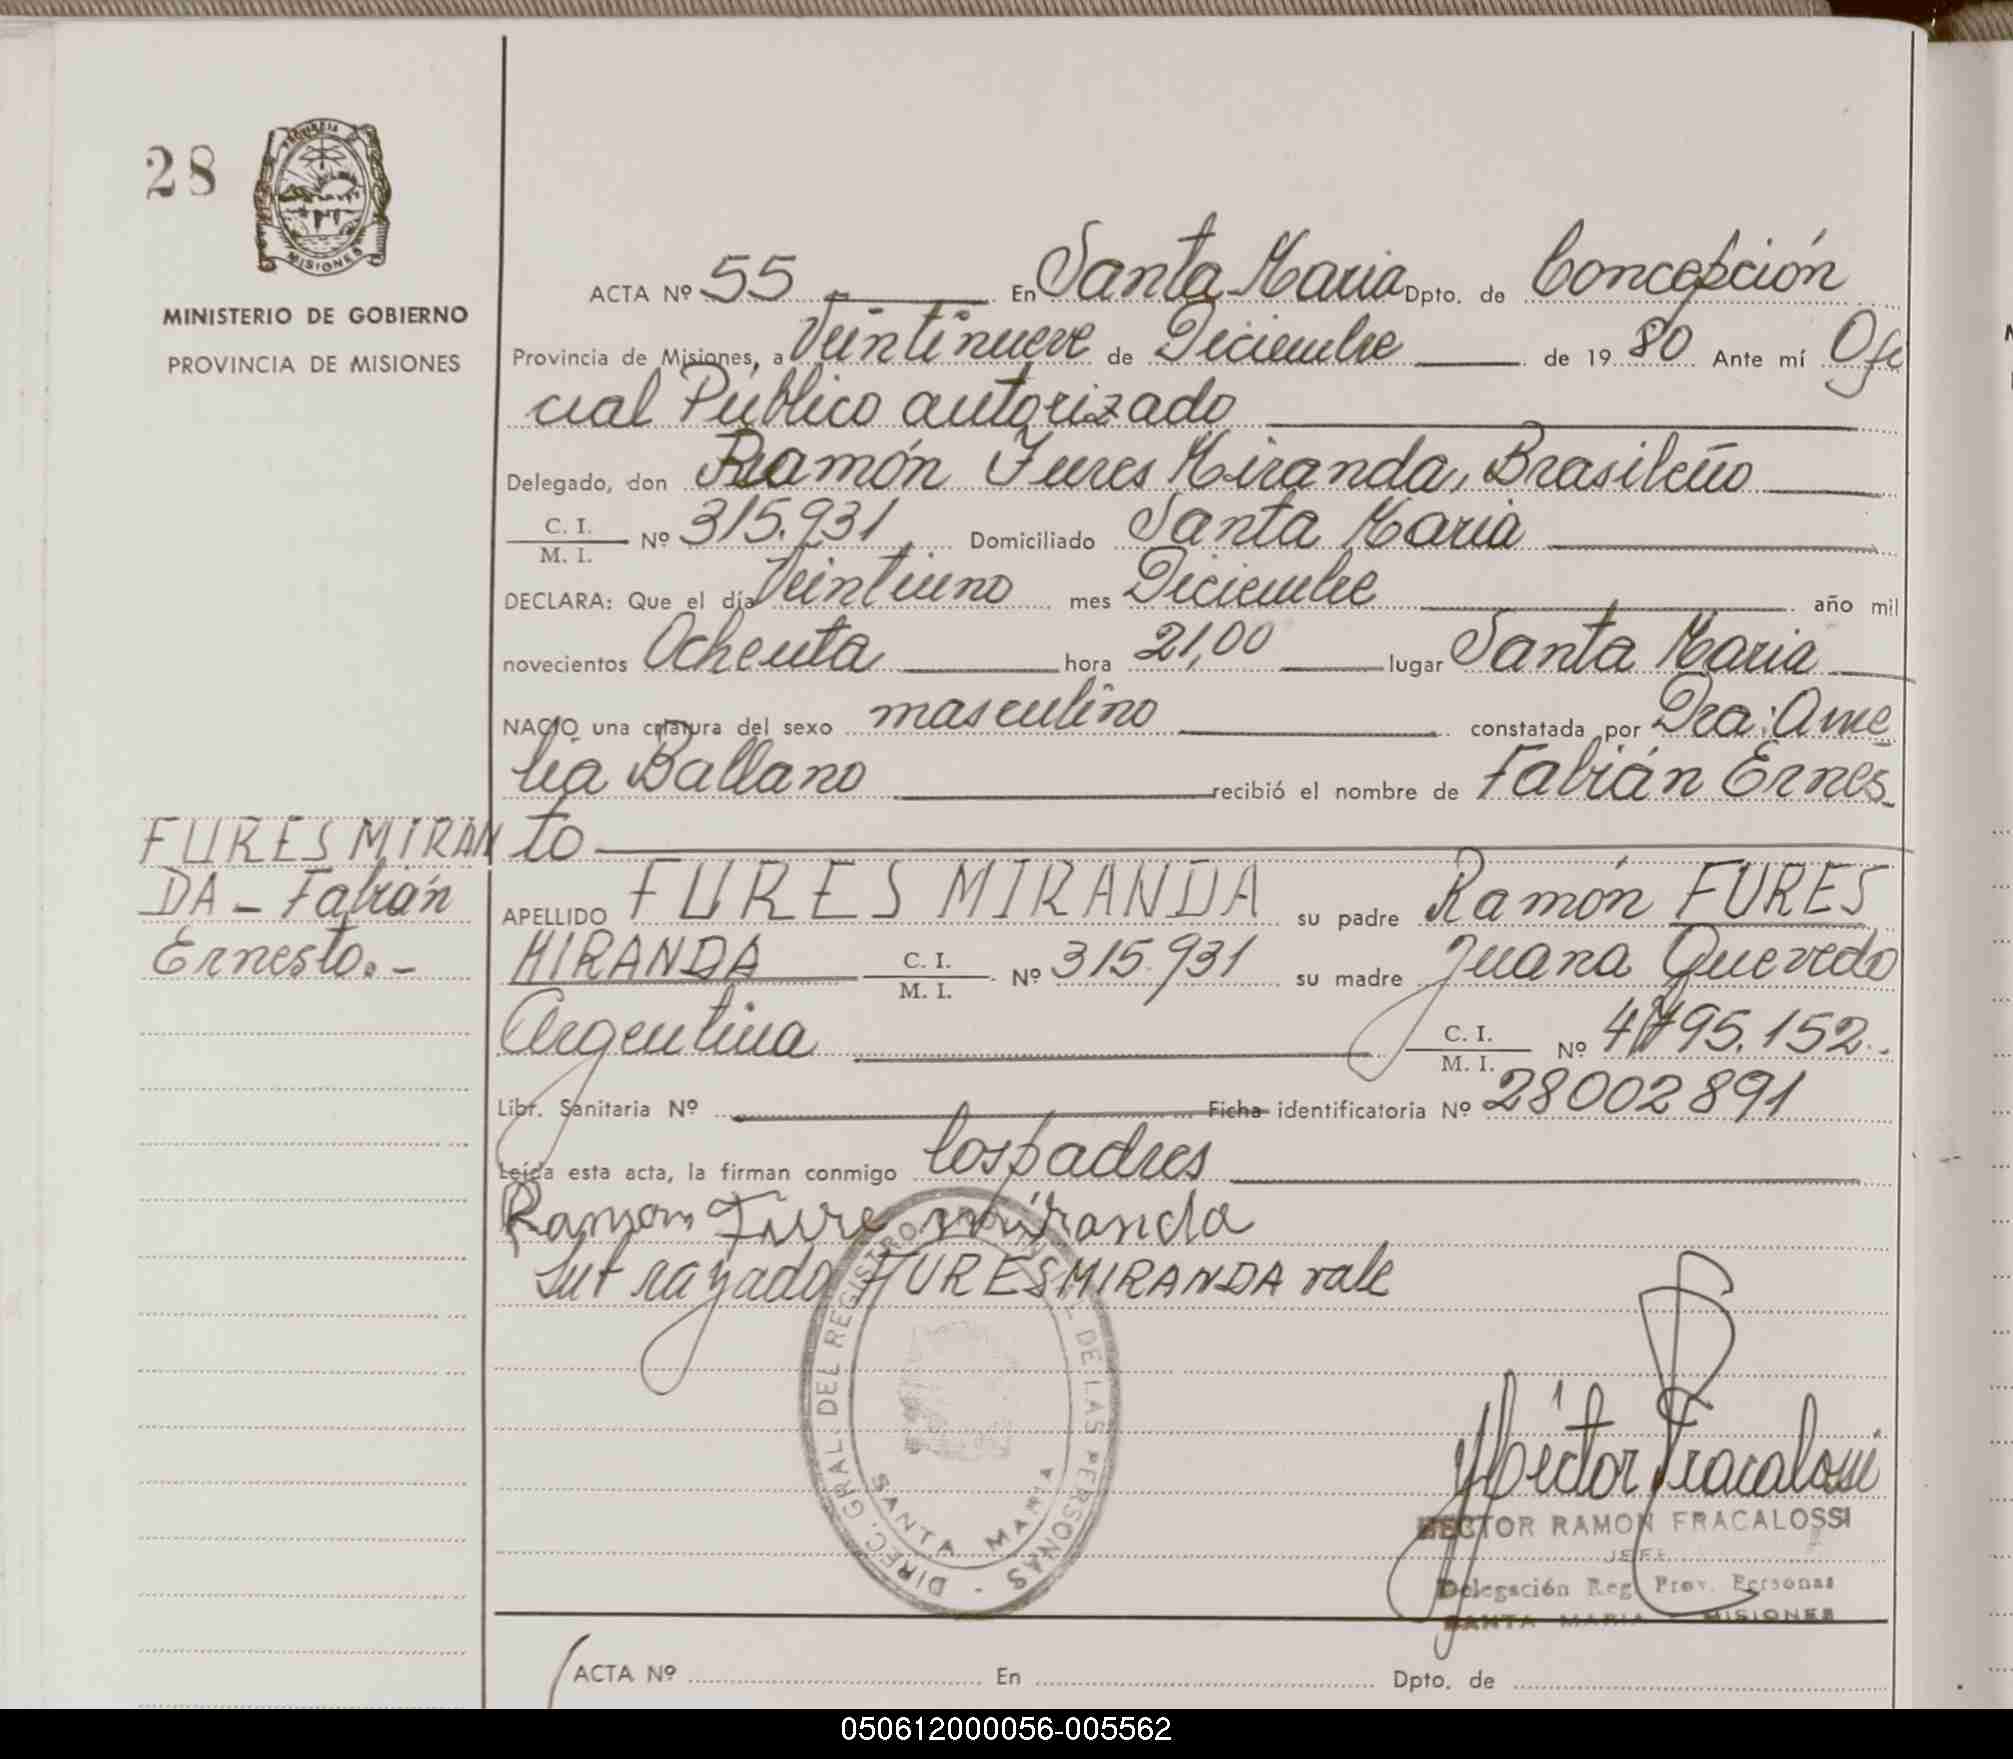 28
PROVINCIA DE
MISIONES
MINISTERIO DE GOBIERNO
PROVINCIA DE MISIONES
ACTA Nº 55 En Santa Maria Dpto. de Concepción
Provincia de Misiones, a Veintinueve de Diciembre de 1980 Ante mí Ofi
cial Público autorizado
Delegado, don Ramón Fures Miranda, Brasileño
C. I.
M. I. Nº 315.931 Domiciliado Santa Maria
DECLARA: Que el día Veintiuno mes Diciembre año mil
novecientos Ochenta hora 21,00 lugar Santa Maria
NACIO una criatura del sexo masculino constatada por Dra: Ame
lia Ballano recibió el nombre de Fabián Ernes
to
FURES MIRAN
DA - Fabián
Ernesto.-
APELLIDO FURES MIRANDA su padre Ramón FURES
MIRANDA C. I.
M. I. Nº 315.931 su madre Juana Quevedo
Argentina C. I.
M. I. Nº 4.795.152.
Libr. Sanitaria Nº Ficha identificatoria Nº 28002891
Leída esta acta, la firman conmigo los padres
Ramon Fure miranda
Sub rayado FURES MIRANDA vale
DIREC. GRAL. DEL REGISTRO PROVINCIAL DE LAS PERSONAS -
SANTA MARIA
Héctor Fracalossi
HECTOR RAMON FRACALOSSI
JEFE
Delegación Reg. Prov. Personas
SANTA MARIA - MISIONES
ACTA Nº En Dpto. de
050612000056-005562